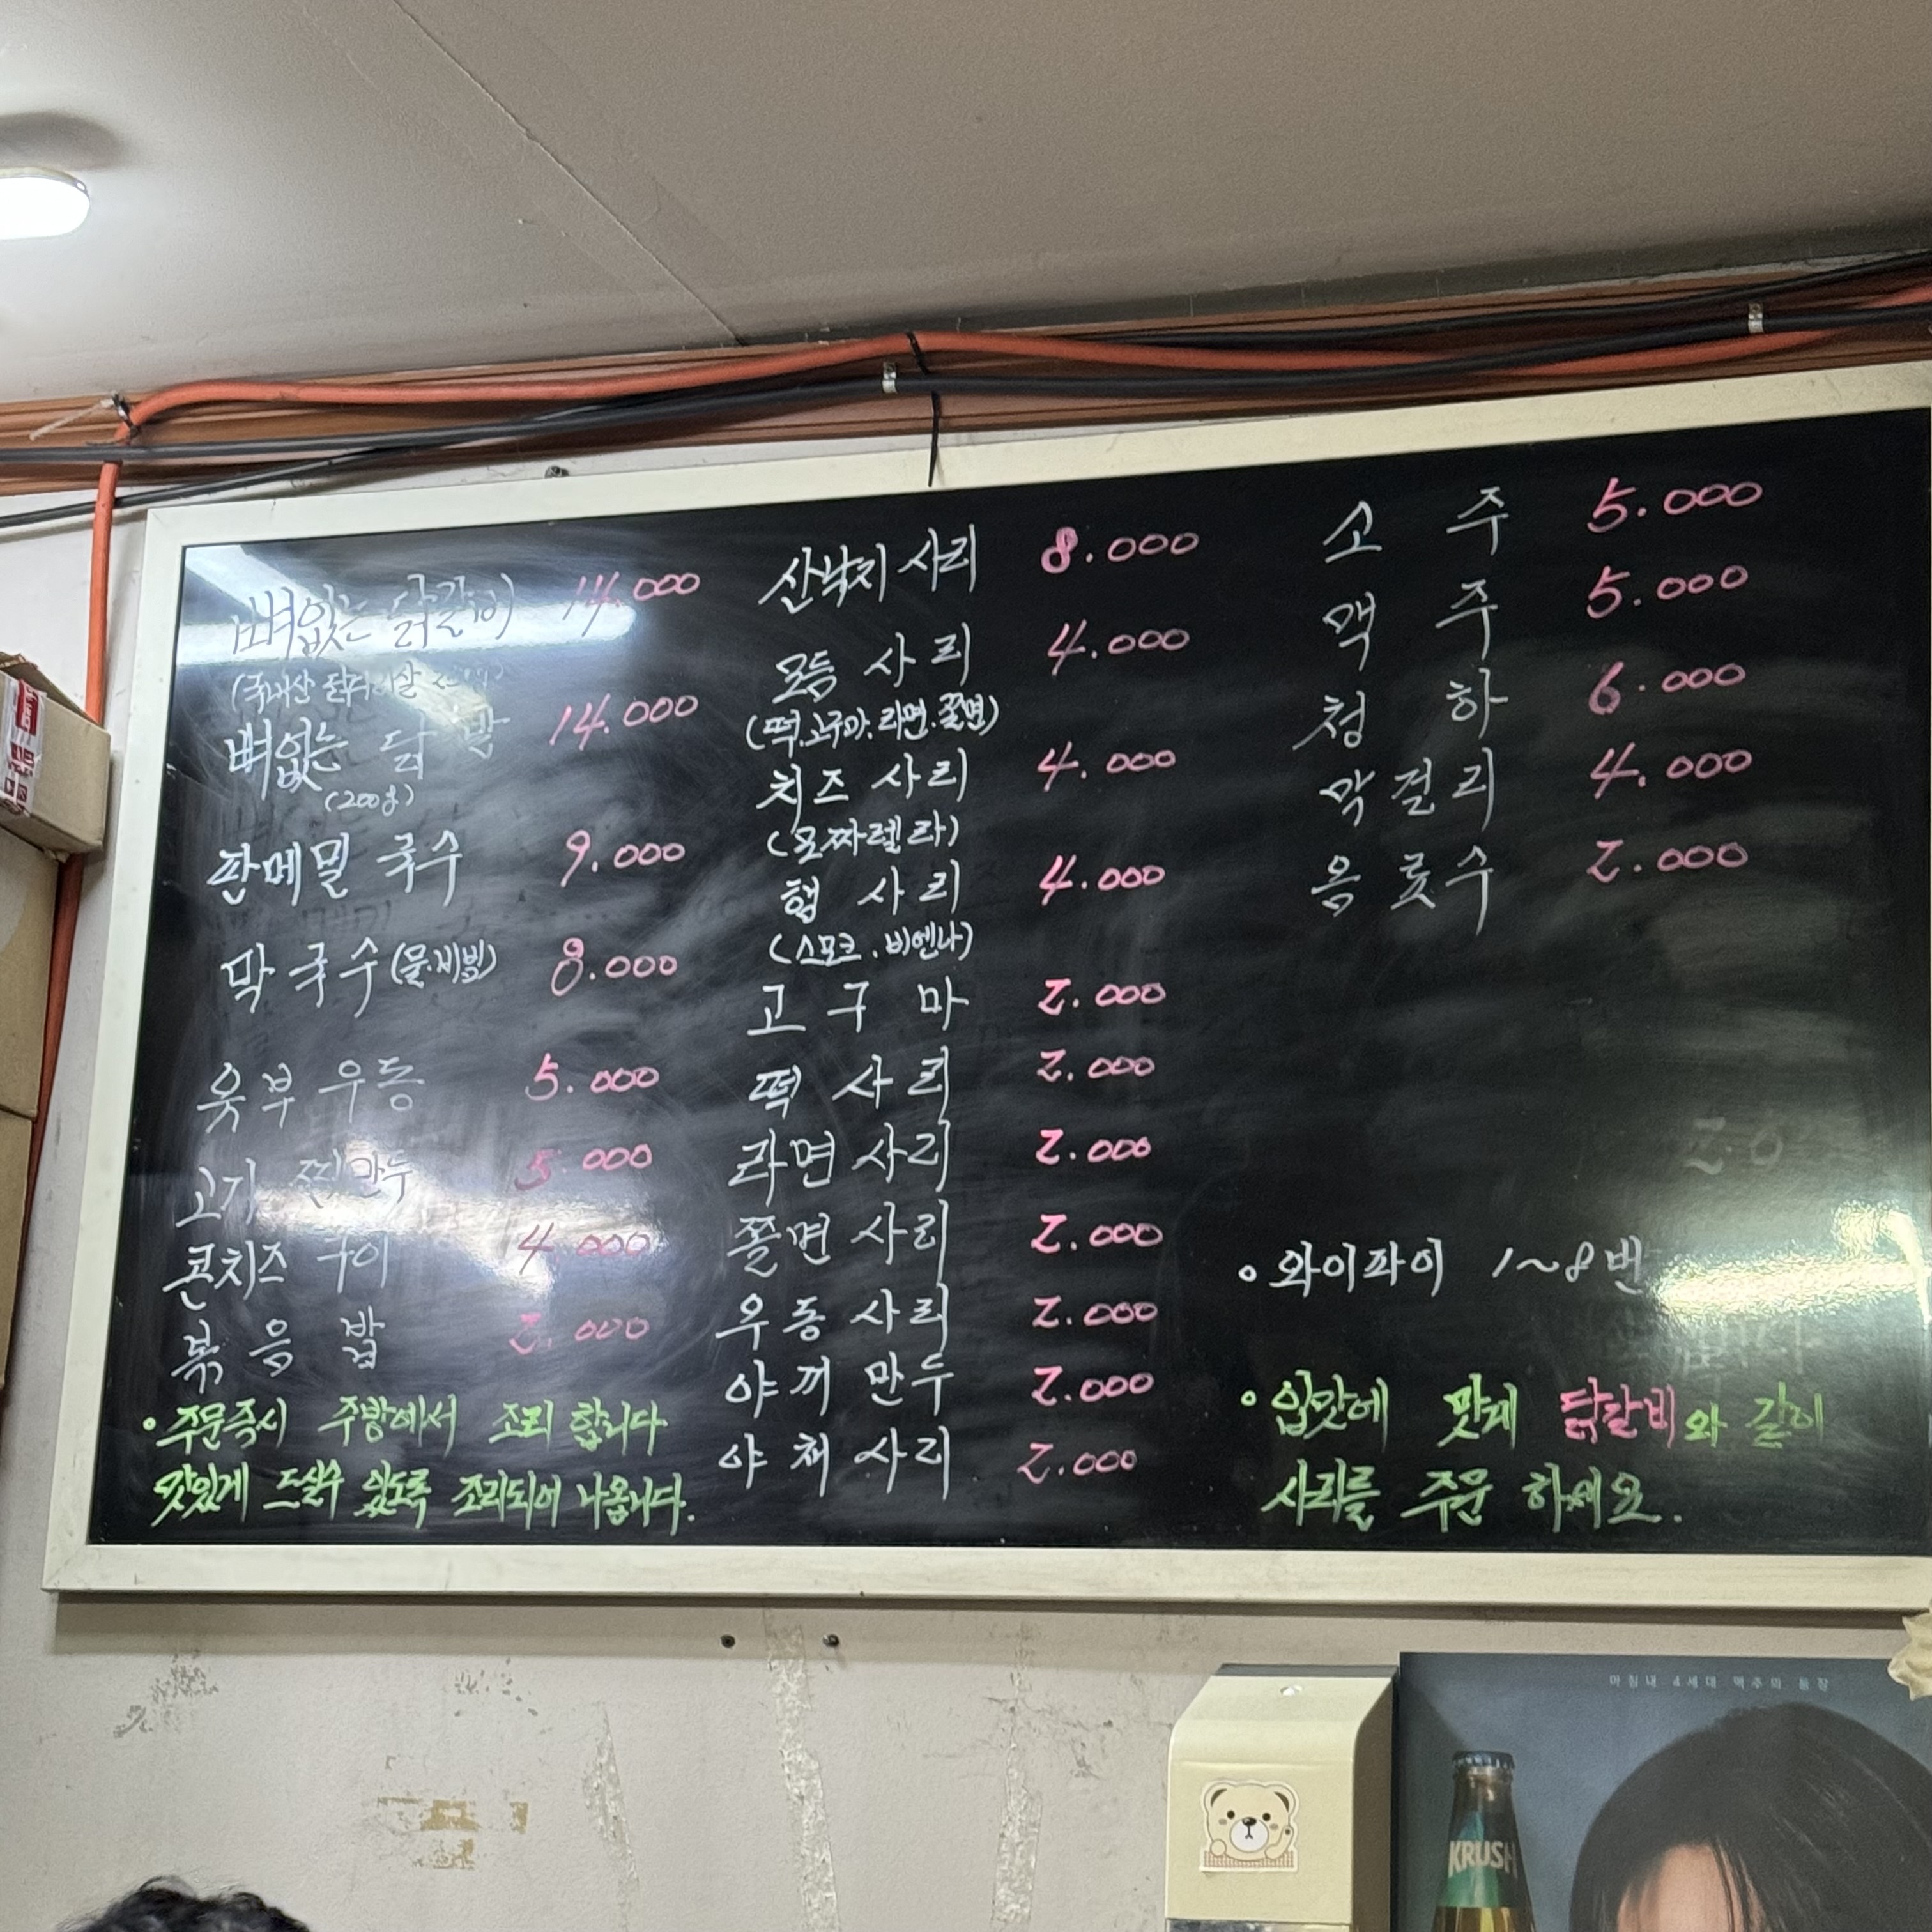 뼈없는 닭갈비 14.000
(국내산 닭다리살
뼈없는 닭 발 14.000
(200g)
판메밀 국수 9.000
막국수 (물.비빔) 8.000
유부우동 5.000
고기 찐만두 5.000
콘치즈 구이 4.000
볶음밥 2.000
• 주문즉시 주방에서 조리 합니다
맛있게 드실수 있도록 조리되어 나옵니다.
산낙지 사리 8.000
모듬 사리 4.000
(떡.고구마.라면.쫄면)
치즈 사리 4.000
(모짜렐라)
햄 사리 4.000
(스모크.비엔나)
고구마 2.000
떡 사리 2.000
라면 사리 2.000
쫄면 사리 2.000
우동 사리 2.000
야끼 만두 2.000
야채 사리 2.000
소 주 5.000
맥 주 5.000
청 하 6.000
막걸리 4.000
음료수 2.000
• 와이파이 1~8번
• 입맛에 맞게 닭갈비와 같이
사리를 주문 하세요.
마침내 4세대 맥주의 등장
KRUSH